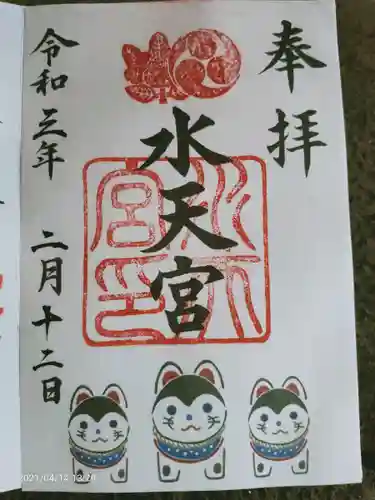 奉拝
水天宮
令和三年 二月十二日
2021/04/14 13:21